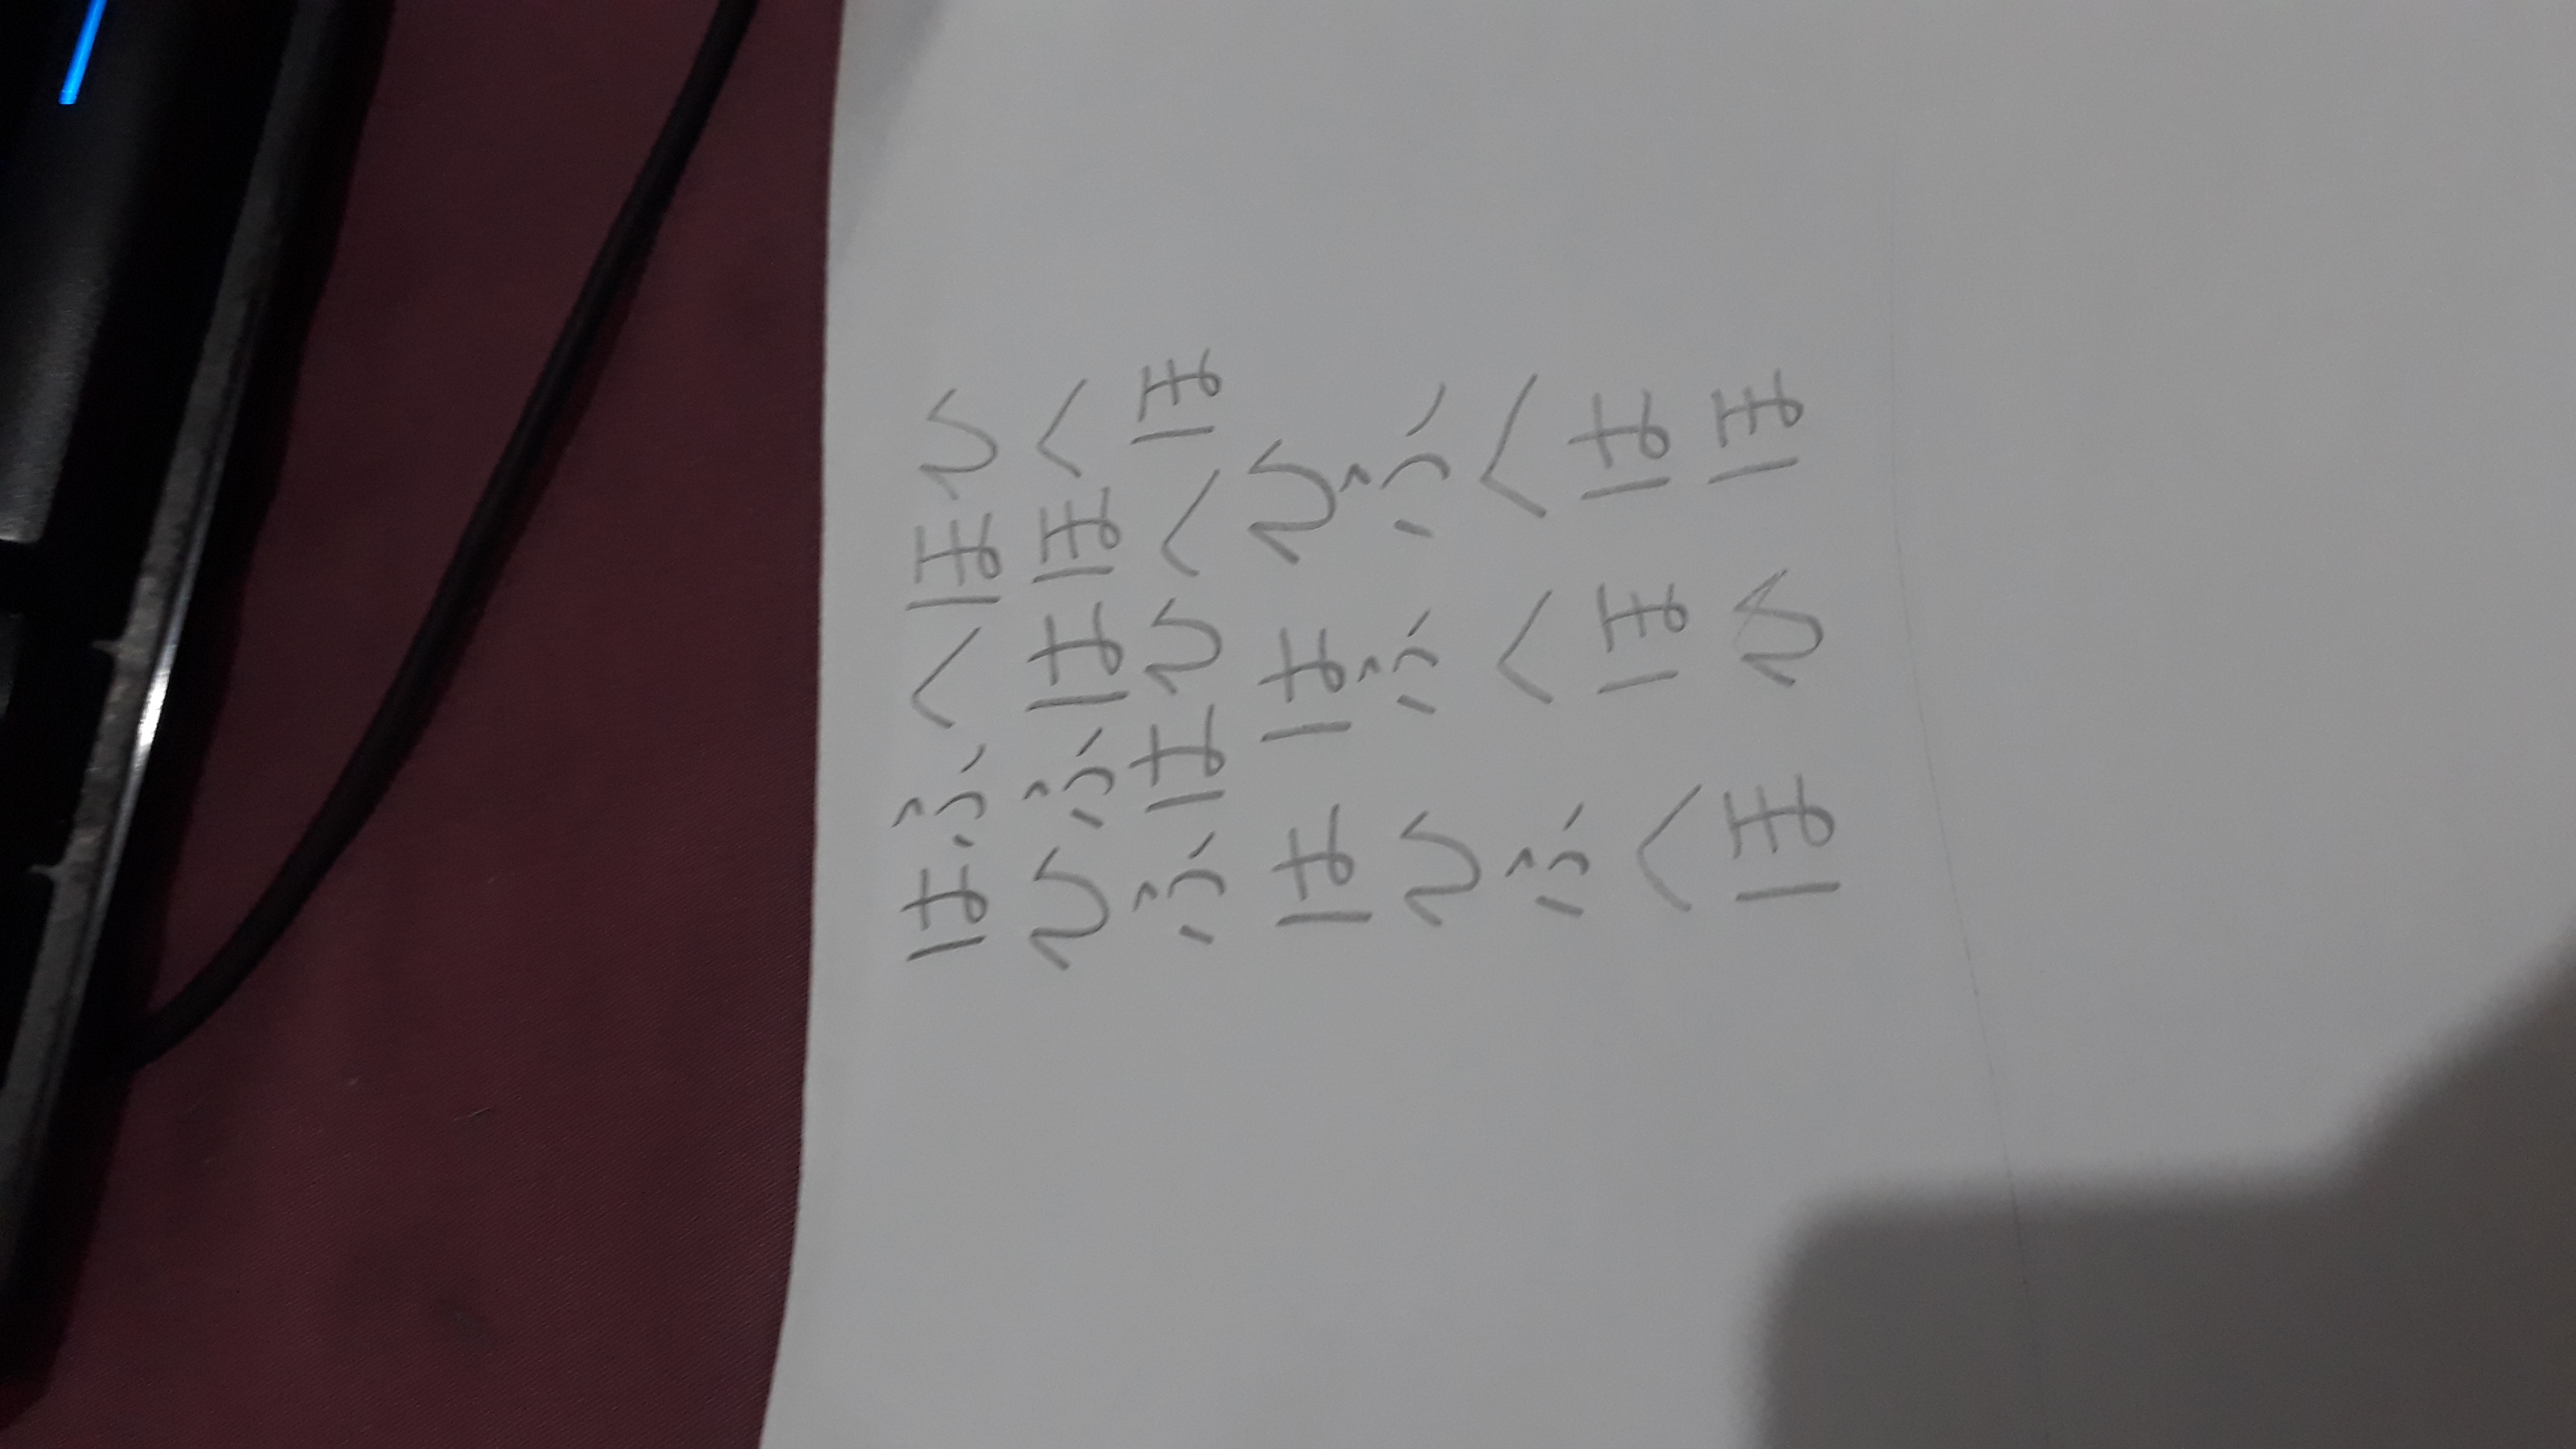 はふへほひ
ひふはほへ
ふはひへほ
は は ひ
ひ ふ ふ
ふ へ へ
へ ほ は
ほ ひ ほ